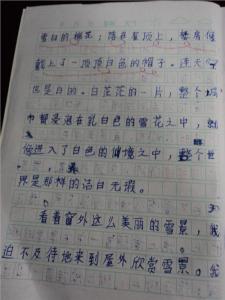 雪白的棉花;落在屋顶上,整房像
戴上了一顶顶白色的帽子。连天
也是白的。白茫茫的一片,整个城
市都浸泡在乳白色的雪花之中,
像进入了白色的仙境之中,整个世
界是那样的洁白无瑕。
看着窗外这么美丽的雪景,我
迫不及待地来到屋外欣赏雪景。我